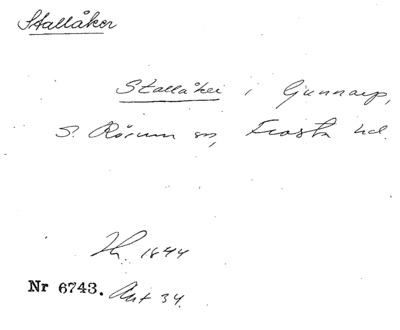 Stallåker
Stallåker i Gunnarp,
S. Rörum sn, Frosta hd.
1844
Nr 6743. Akt 34.